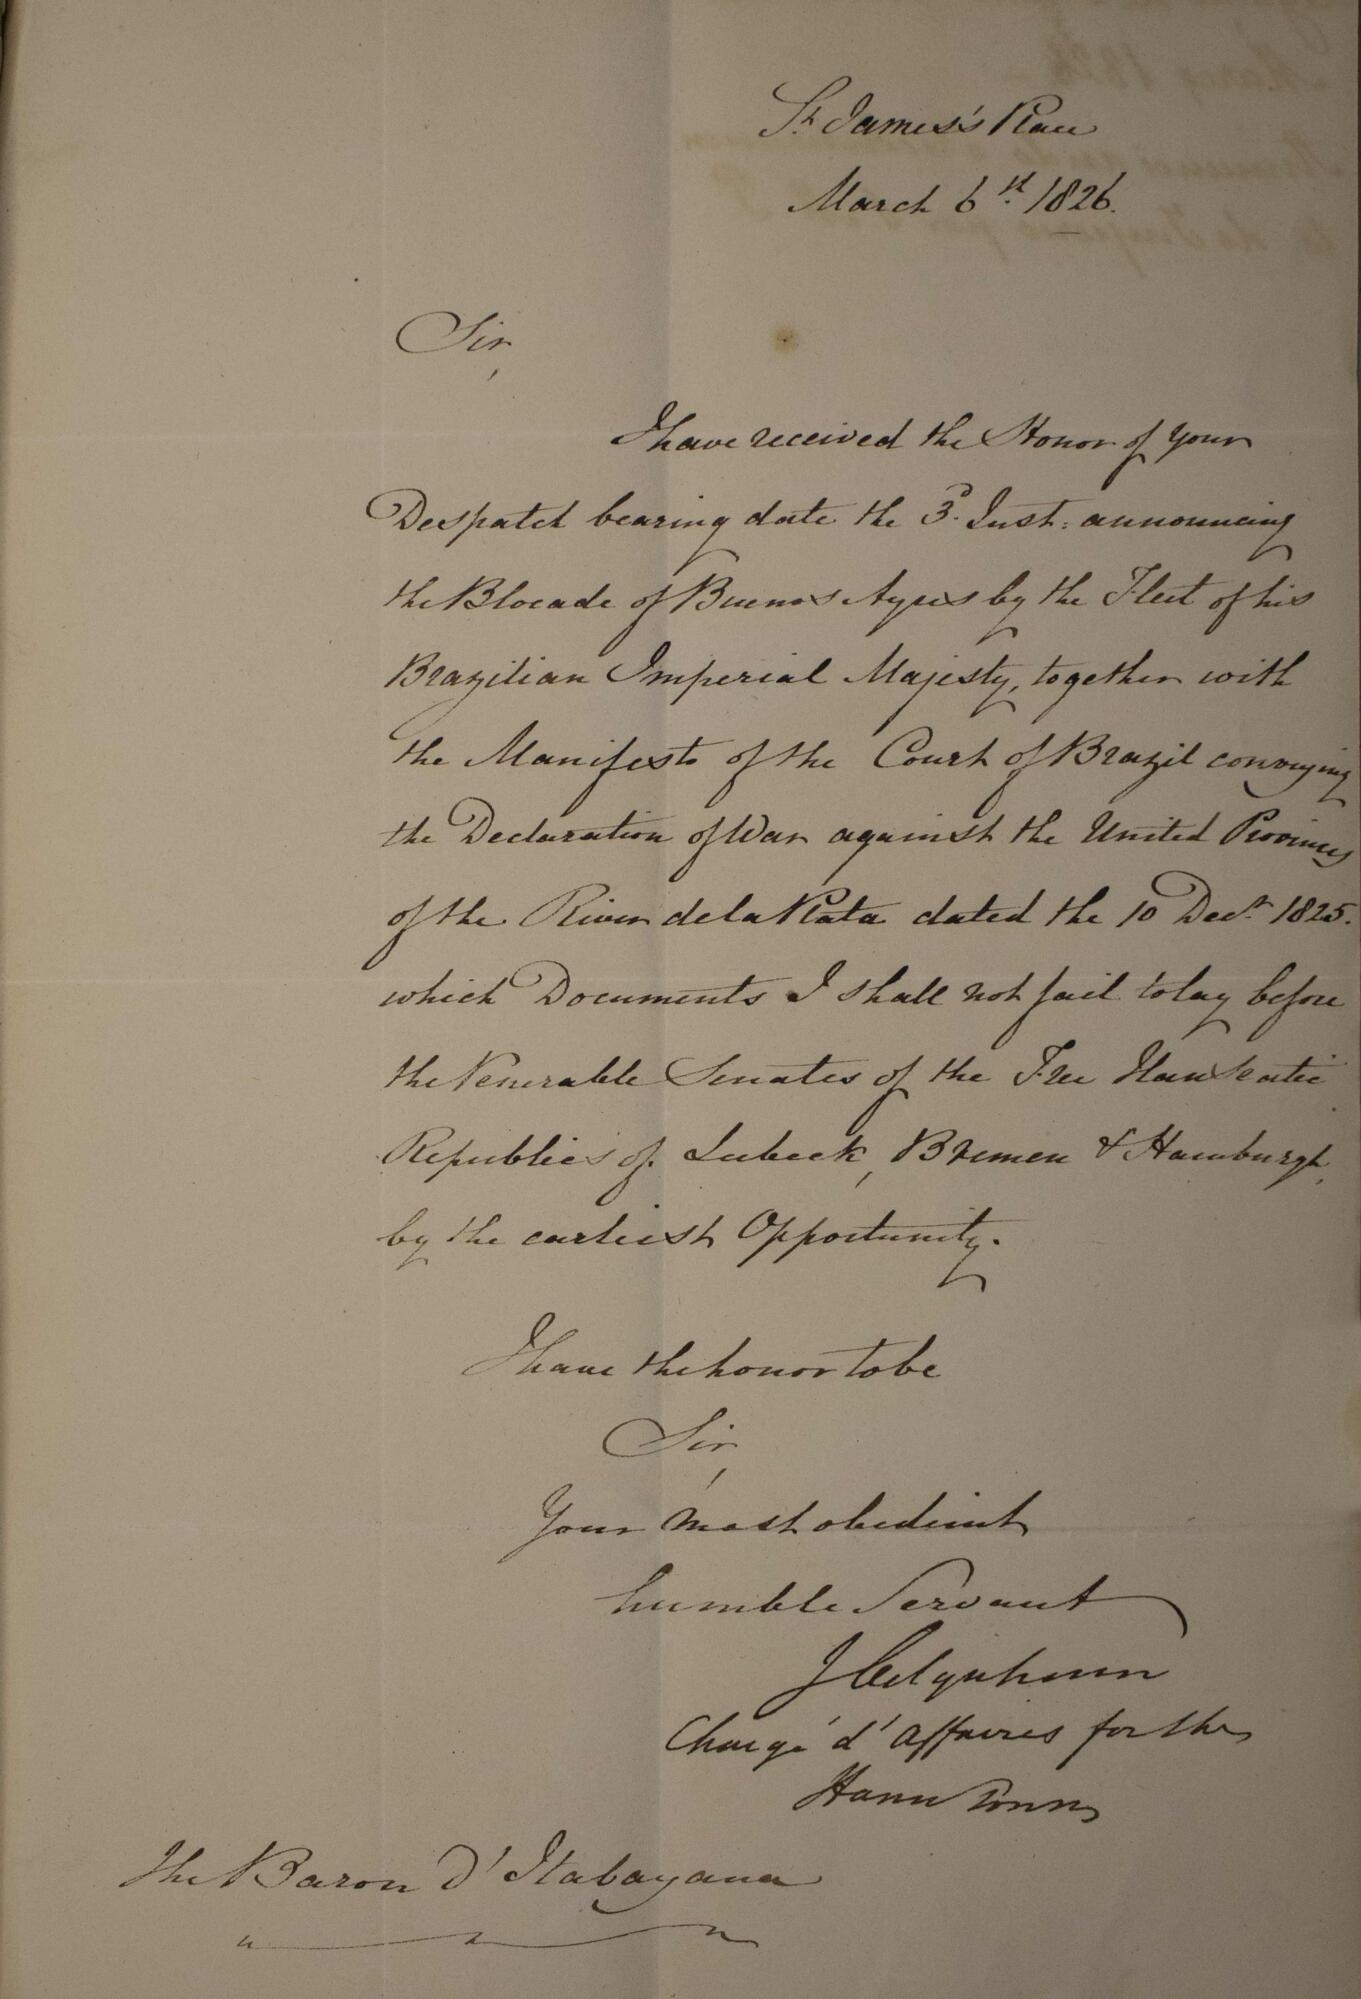 St. James's Place
March 6st. 1826.
Sir,
I have received the Honor of your
Despatch bearing date the 3d. Inst: announcing
the Blocade of Buenos Ayres by the Fleet of his
Brazilian Imperial Majesty, together with
the Manifesto of the Court of Brazil conveying
the Declaration of War against the United Provinces
of the River de la Plata dated the 10 Decr. 1825.
which Documents I shall not fail to lay before
the Venerable Senates of the Free Hanseatic
Republics of Lubeck, Bremen & Hamburgh,
by the earliest Opportunity.
I have the honor to be
Sir,
Your most obedient
humble Servant
J Colquhoun
Chargé d'Affaires for the
Hanse Towns
The Baron d'Itabayana